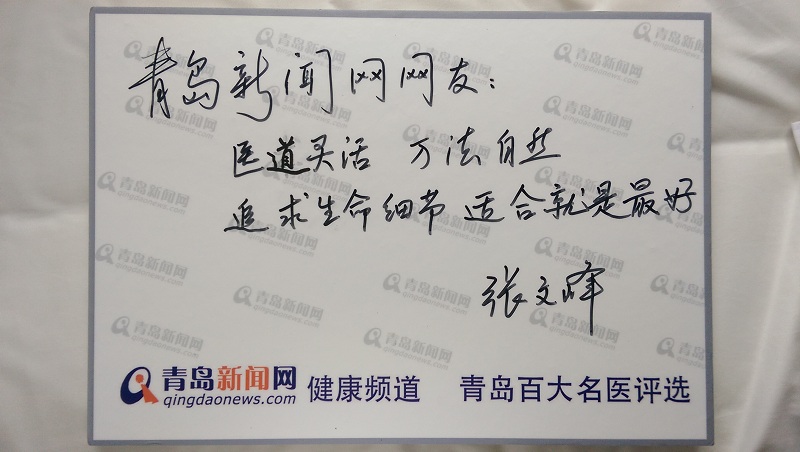 青岛新闻网网友：
医道灵活 万法自然
追求生命细节 适合就是最好
张文峰
青岛新闻网 健康频道 青岛百大名医评选
qingdaonews.com